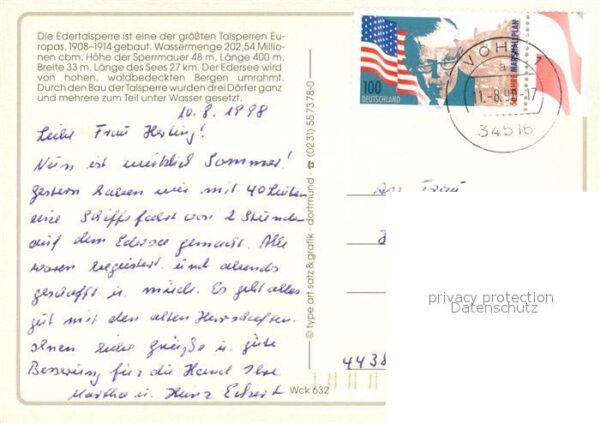 Die Edertalsperre ist eine der größten Talsperren Eu-
ropas, 1908-1914 gebaut. Wassermenge 202,54 Millio-
nen cbm. Höhe der Sperrmauer 48 m, Länge 400 m,
Breite 33 m, Länge des Sees 27 km. Der Edersee wird
von hohen, waldbedeckten Bergen umrahmt.
Durch den Bau der Talsperre wurden drei Dörfer ganz
und mehrere zum Teil unter Wasser gesetzt.
10.8.1998
Liebe Frau
Nun ist wirklich Sommer!
gestern haben wir mit 40 Leuten
eine Schiffsfahrt von 2 Stunden
auf dem Edersee gemacht. Alle
waren begeistert und abends
geschafft u. müde. Es geht alles
gut mit den alten Herrschaften.
Ihnen liebe Grüße u. gute
Besserung für die Hand Ihre
Martha u. Heinz
Wck 632
© type art satz & grafik · dortmund · ☎ (02 31) 55 73 78-0
100
DEUTSCHLAND
50 JAHRE MARSHALLPLAN
VÖHL 1
a
11.-8.98-17
34516
An Frau
privacy protection
Datenschutz
4438